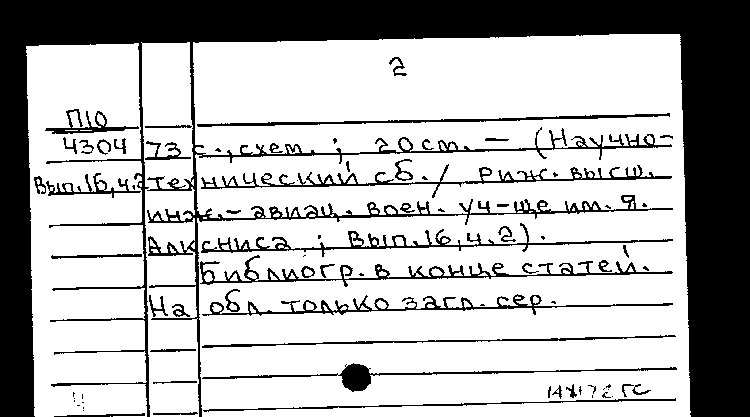 2
П10
4304
Вып.16,ч.2
73 с., схем. ; 20 см. — (Научно-
технический сб. / Риж. высш.
инж.-авиац. воен. уч-ще им. Я.
Алксниса ; Вып.16, ч.2).
Библиогр. в конце статей.
На обл. только загл. сер.
Ч